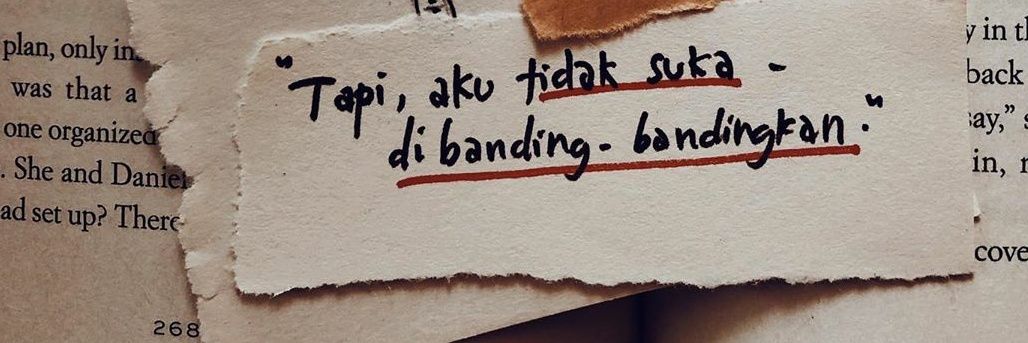 plan, only in
was that a
one organized
. She and Daniel
ad set up? There
268
"Tapi, aku tidak suka -
di banding - bandingkan."
y in
back
ay,"
in,
cove